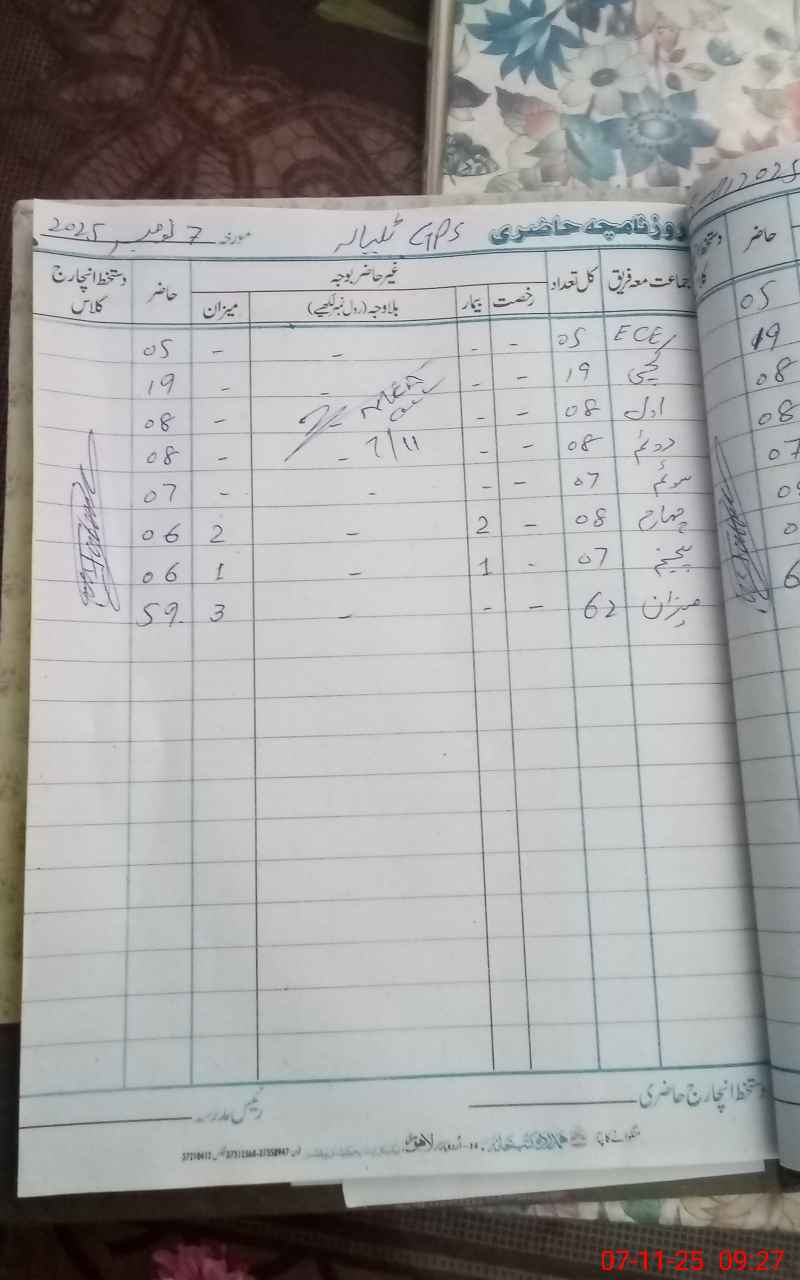 روزنامچہ حاضری GPS ٹلیالہ مورخہ 7 نومبر 2025
جماعت معہ فریق کل تعداد غیر حاضر بوجہ حاضر دستخط انچارج کلاس
رخصت بیمار بلاوجہ (رول نمبر لکھیے) میزان
ECE 05 - - - - 05
کچی 19 - - - - 19
اول 08 - - - - 08
دوئم 08 - - - - 08
7/11
سوئم 07 - - - - 07
چہارم 08 - 2 - 2 06
پنجم 07 - 1 - 1 06
میزان 62 - - - 3 59
دستخط انچارج حاضری
رئیس مدرسہ
اردو بازار لاہور
37312568-37358947
37210412
2025
حاضر
05
19
08
08
07
07-11-25 09:27